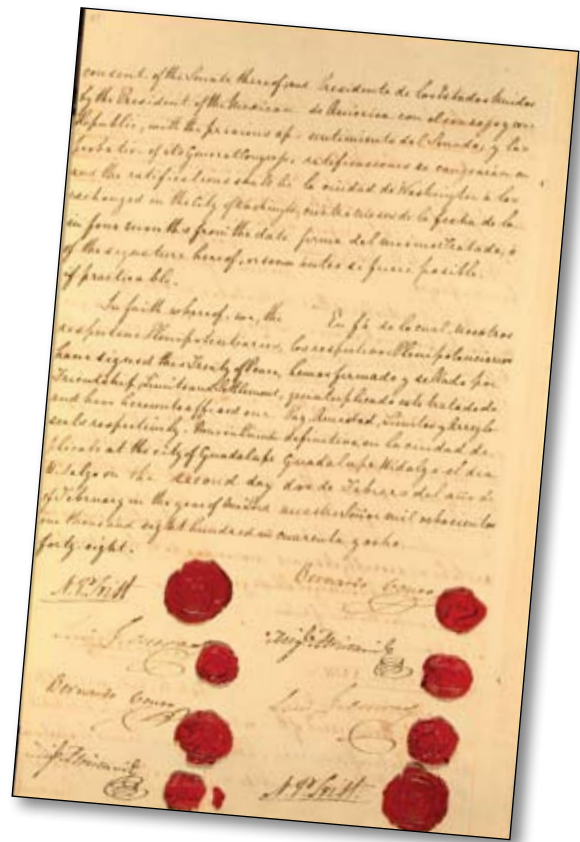 consent of the Senate thereof; and
by the President of the Mexican
Republic, with the previous ap-
probation of its General Congress;
and the ratifications shall be
exchanged in the City of Washington,
in four months from the date
of the signature hereof, or sooner
if practicable.
In faith whereof, we, the
respective Plenipotentiaries,
have signed this Treaty of Peace,
Friendship, Limits and Settlement,
and have hereunto affixed our
seals respectively. Done in Quintu-
plicate at the city of Guadalupe
Hidalgo on the second day
of February in the year of our Lord
one thousand eight hundred and
forty-eight.
Presidente de los Estados Unidos
de America con el consejo y con-
sentimiento del Senado; y las
ratificaciones se cangearán en
la ciudad de Washington a los
cuatro meses de la fecha de la
firma del mismo Tratado, ó
antes si fuere posible.
En fé de lo cual, nosotros
los respectivos Plenipotenciarios
hemos firmado y sellado por
quintuplicado este tratado de
Paz, Amistad, Limites y Arreglo
definitivo, en la ciudad de
Guadalupe Hidalgo el dia
dos de Febrero del año de
nuestro Señor mil ochocientos
cuarenta y ocho.
N. P. Trist
Bernardo Couto
Bernardo Couto
N. P. Trist